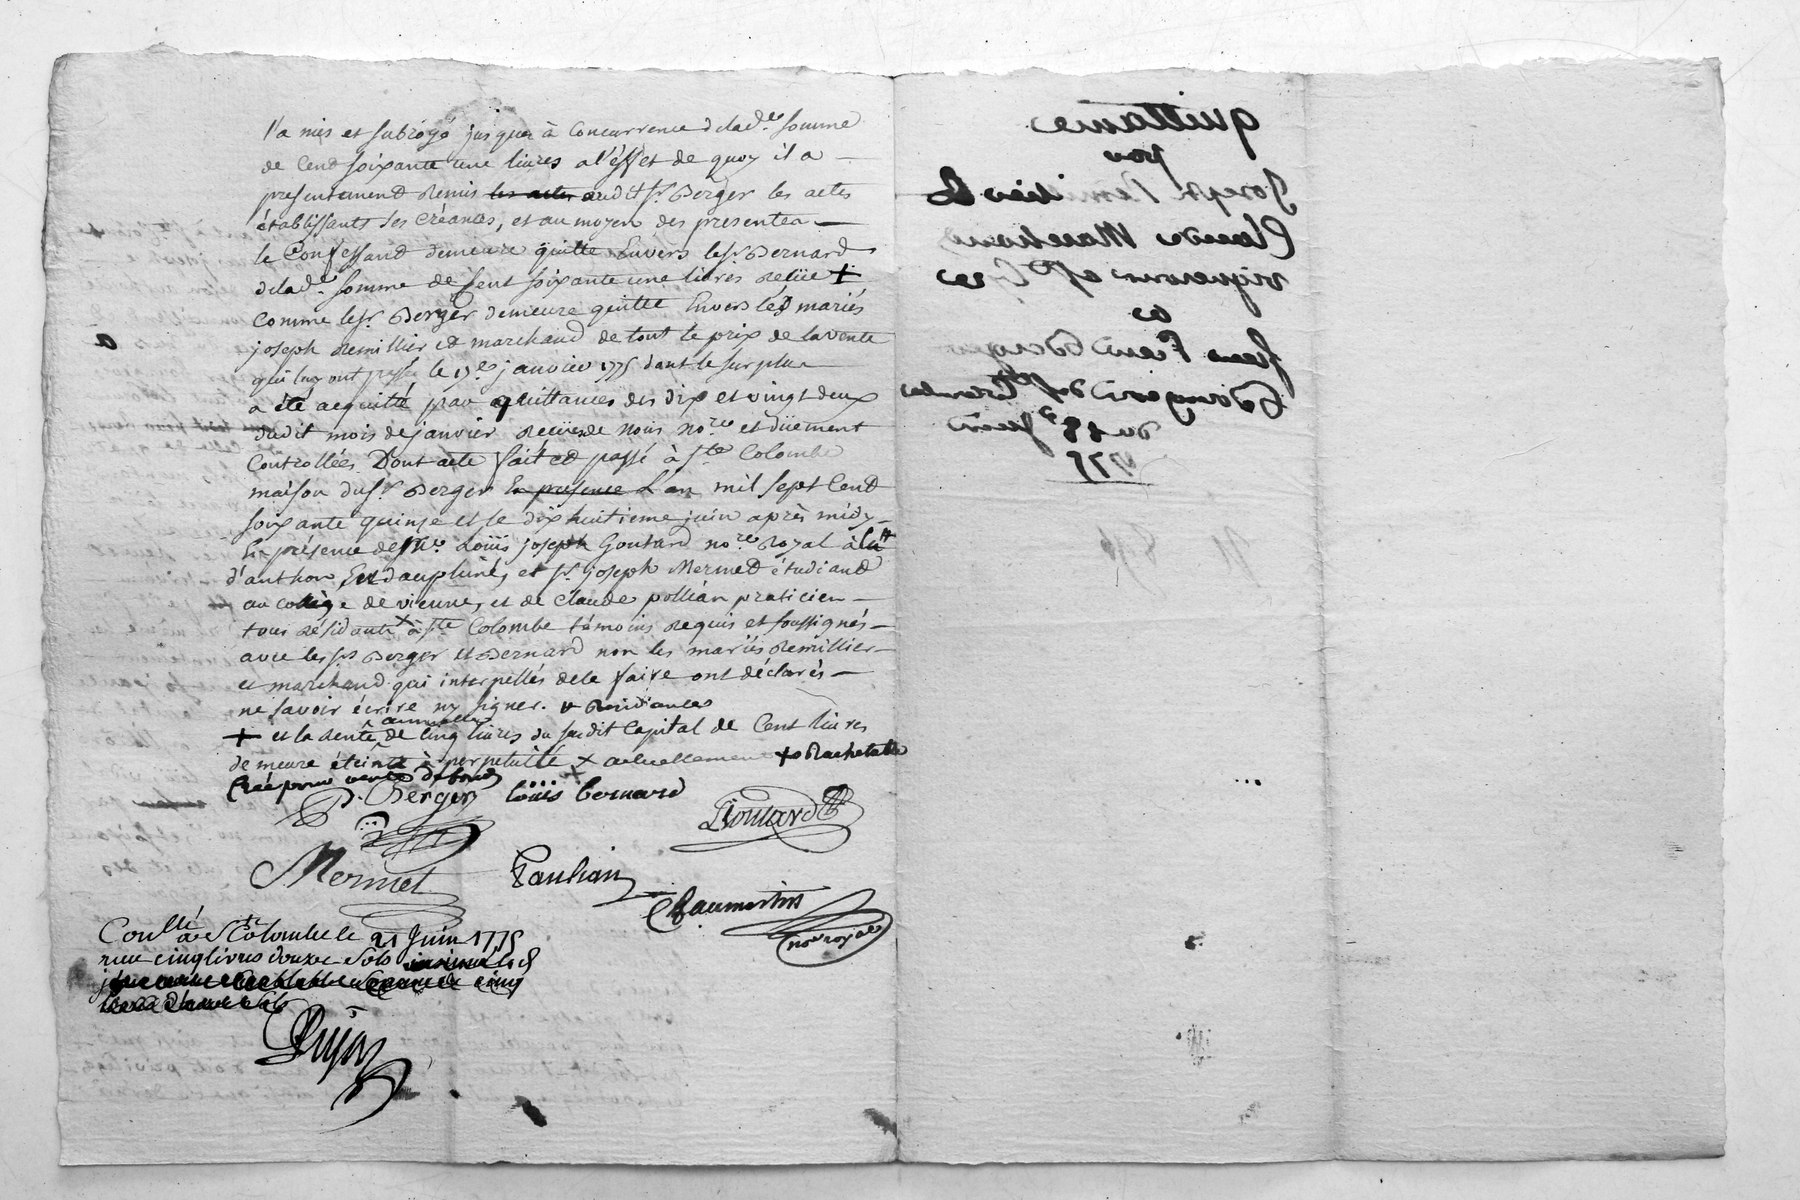 l'a mis et subrogé jusques à Concurrence deladte somme
de Cent soixante une livres a l'effet de quoy il a
presentement Remis les actes audit sr. Berger les actes
établissants ses créances, et au moyen des presentes
le Confessant demeure quitte Envers le sr. Bernard
delade. somme de Cent soixante une livres Reçüe +
Comme le sr. Berger demeure quitte Envers les mariés
joseph Remillier et marchand de tout le prix de la vente
qui luy ont passé le 17e janvier 1775 dont le surplus
a été acquitté par quittances des dix et vingt deux
dudit mois de janvier Reçües de nous nore et düement
Controllées Dont acte fait et passé à ste Colombe
maison du sr Berger En presence L'an mil sept Cent
soixante quinze et le dix huitieme juin après midy
En présence de Me Loüis joseph Goutard nore Royal à
d'anthon En dauphiné, et sr. joseph Mermet étudiant
au collège de vienne, et de Claude pollian praticien
tous Résidants x à ste Colombe témoins Requis et soussignés
avec les srs Berger et Bernard non les mariés Remillier
et marchand qui interpellés de le faire ont déclarés
ne savoir écrire ny signer.
+ et la Rente annuelle de Cinq livres du susdit Capital de Cent livres
demeure éteinte à perpetuité x actuellement + Rachetable
Créé pour vente de fonds
Berger loüis bernard Goutard
Mermet Paulian
Chaumartin
nore royal
Conllé a Ste Colombe le 21 Juin 1775
recu cinq livres douze Sols
Dujar
a
quittance
pour
Joseph Remillier &
Claude Marchand
vigneron a ste Cre
a
Jean Fran Berger
Bourgeois de ste Colombe
du 18e Juin
1775